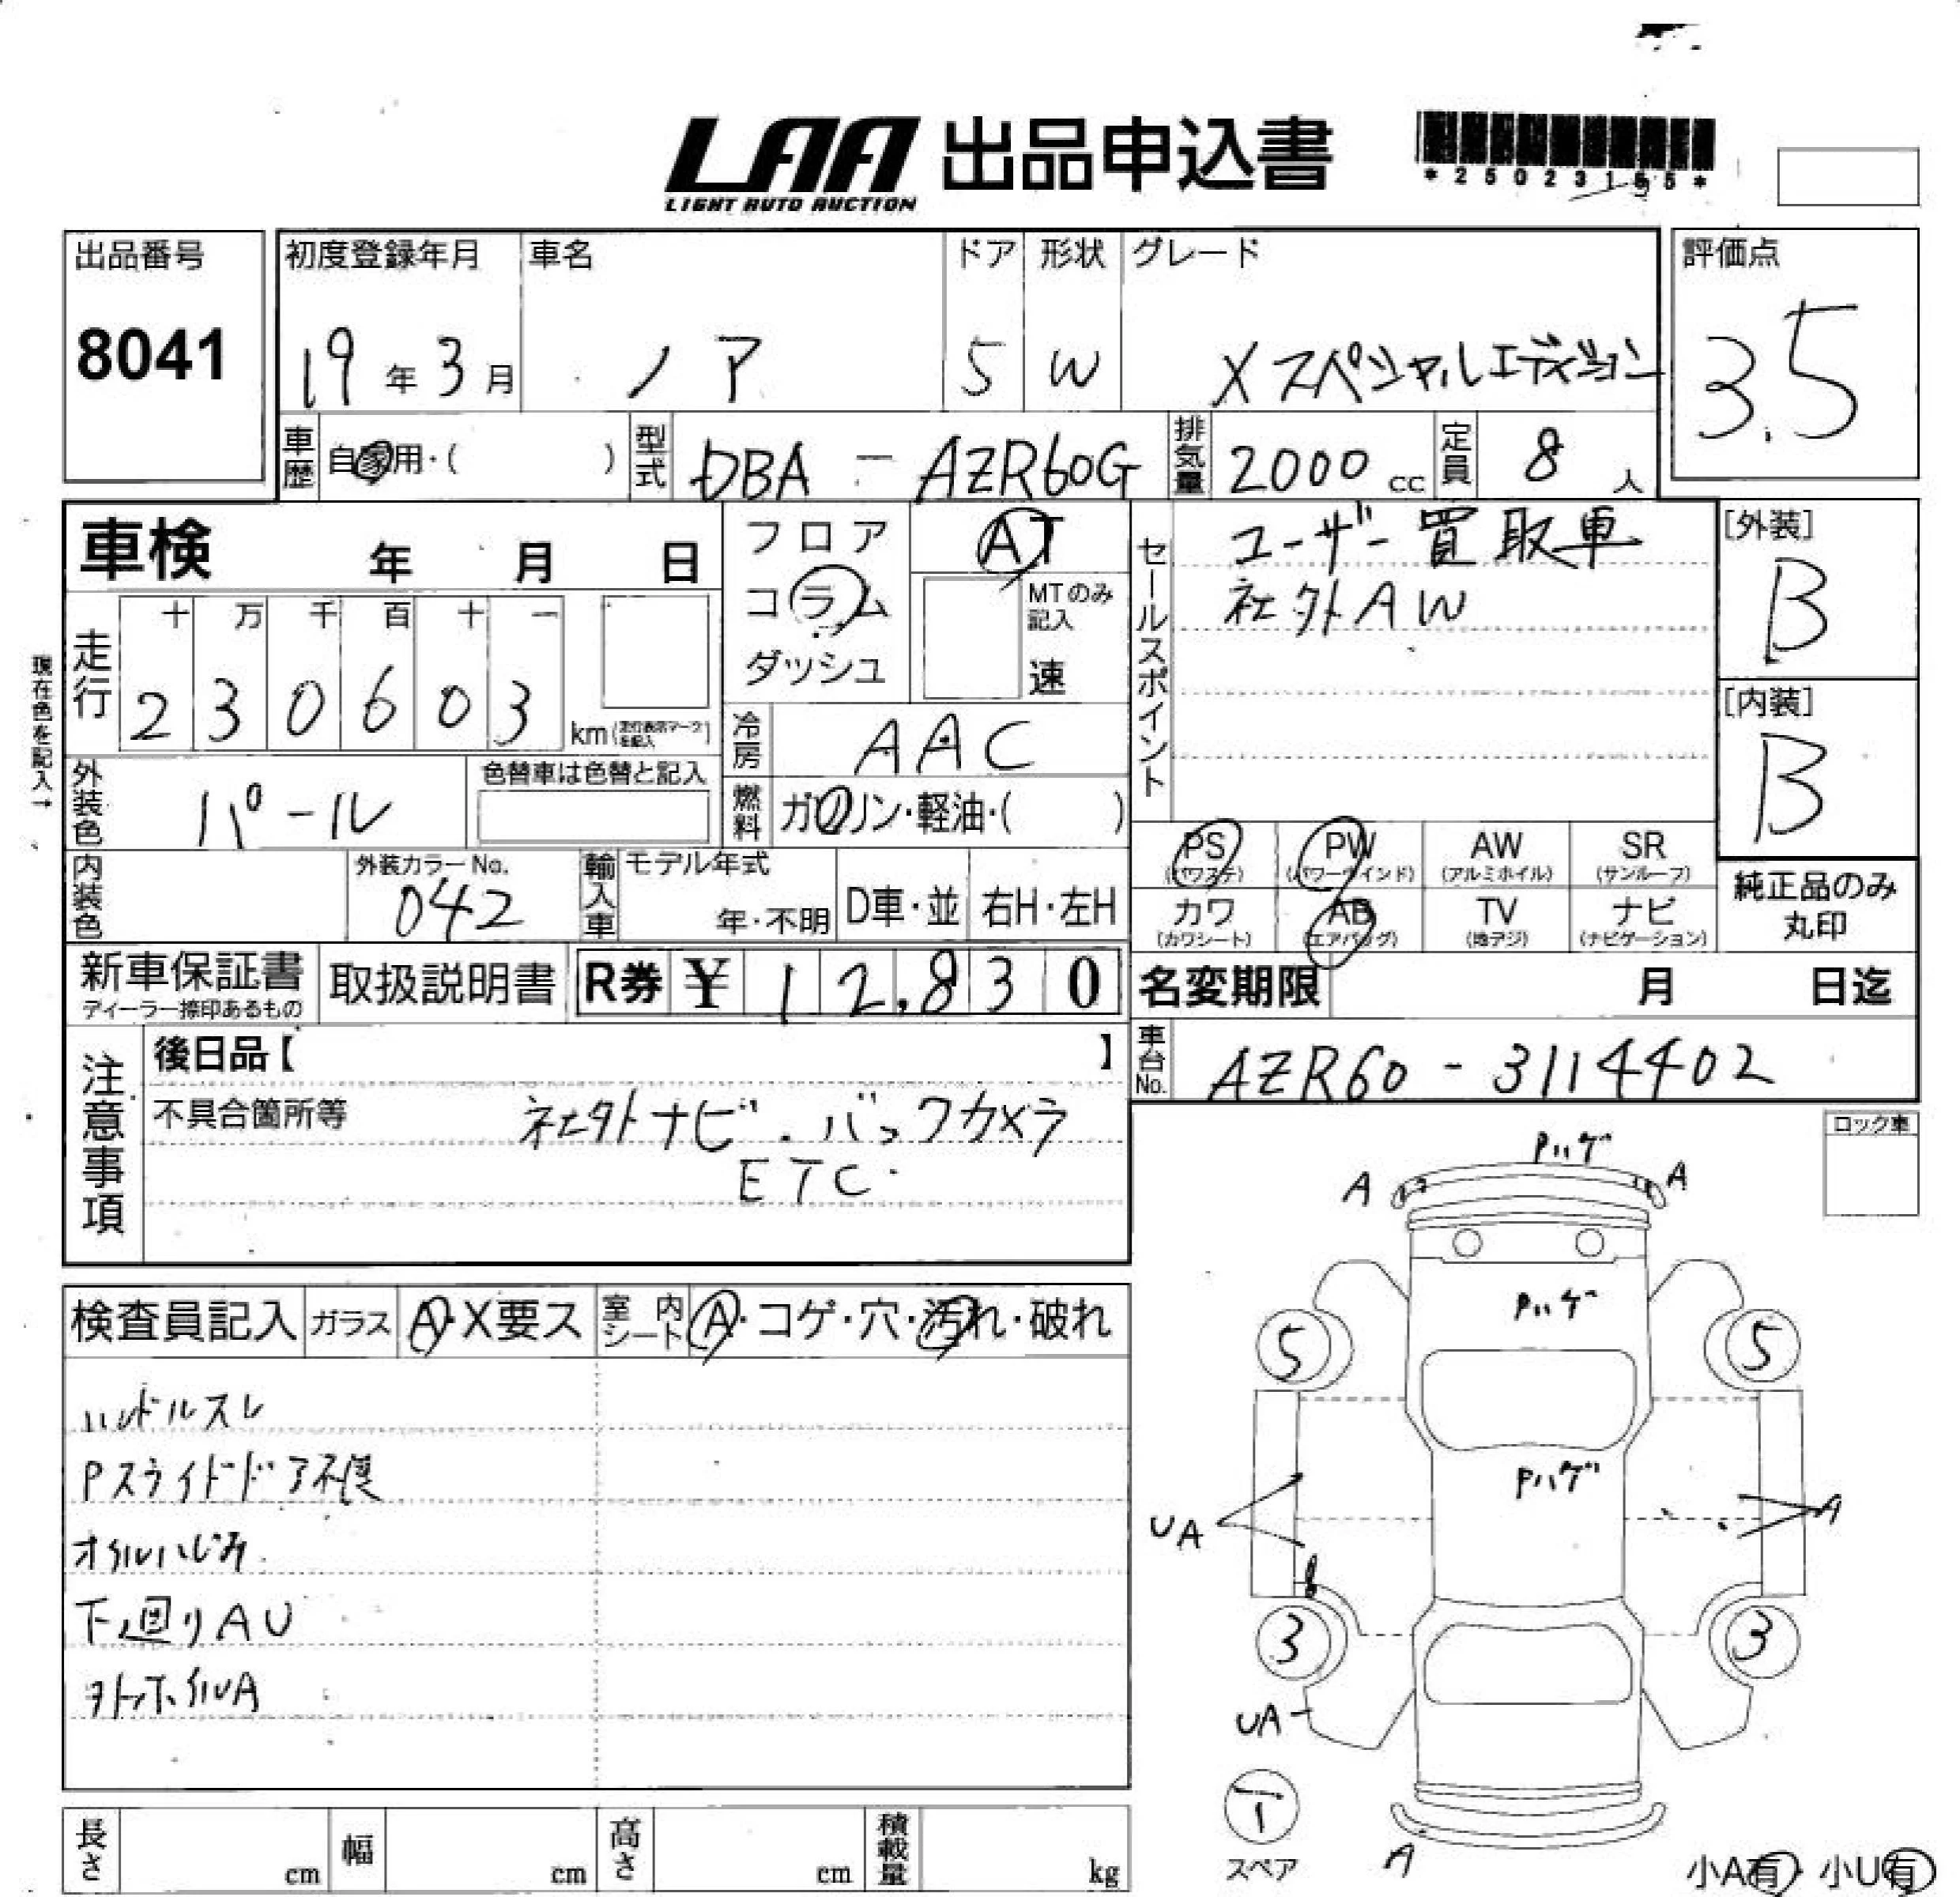 LAA 出品申込書
LIGHT AUTO AUCTION
出品番号
8041
初度登録年月
19年3月
車名
ノア
ドア
5
形状
W
グレード
Xスペシャルエディション
評価点
3.5
車歴
自家用・( )
型式
DBA - AZR60G
排気量
2000cc
定員
8人
車検 年 月 日
現在色を記入→
走行
十 万 千 百 十 一
2 3 0 6 0 3 km
フロア
コラム
ダッシュ
AT
MTのみ記入
速
冷房
AAC
外装色
パール
色替車は色替と記入
燃料
ガソリン・軽油・( )
内装色
外装カラーNo.
042
輸入車
モデル年式
年・不明
D車・並
右H・左H
セールスポイント
ユーザー買取車
社外AW
[外装]
B
[内装]
B
PS (パワステ)
PW (パワーウインド)
AW (アルミホイル)
SR (サンルーフ)
カワ (カワシート)
AB (エアバッグ)
TV (地デジ)
ナビ (ナビゲーション)
純正品のみ丸印
新車保証書
ディーラー捺印あるもの
取扱説明書
R券 ¥ 12,830
名変期限 月 日迄
車台No.
AZR60 - 3114402
注意事項
後日品【 】
不具合箇所等
社外ナビ・バックカメラ
ETC・
ロック車
検査員記入
ガラス
A・X要ス
室内シート
A・コゲ・穴・汚れ・破れ
ハンドルスレ
Pスライドドア不良
オイルハじみ
下廻りAU
Pハゲ
A
A
Pハゲ
5
5
Pハゲ
UA
A
3
3
UA
T
スペア
A
小A有・小U有
長さ cm
幅 cm
高さ cm
積載量 kg